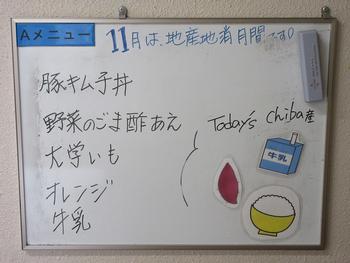 Aメニュー
11月は、地産地消月間です!
豚キムチ丼
野菜のごま酢あえ
大学いも
オレンジ
牛乳
Today's Chiba産
牛乳